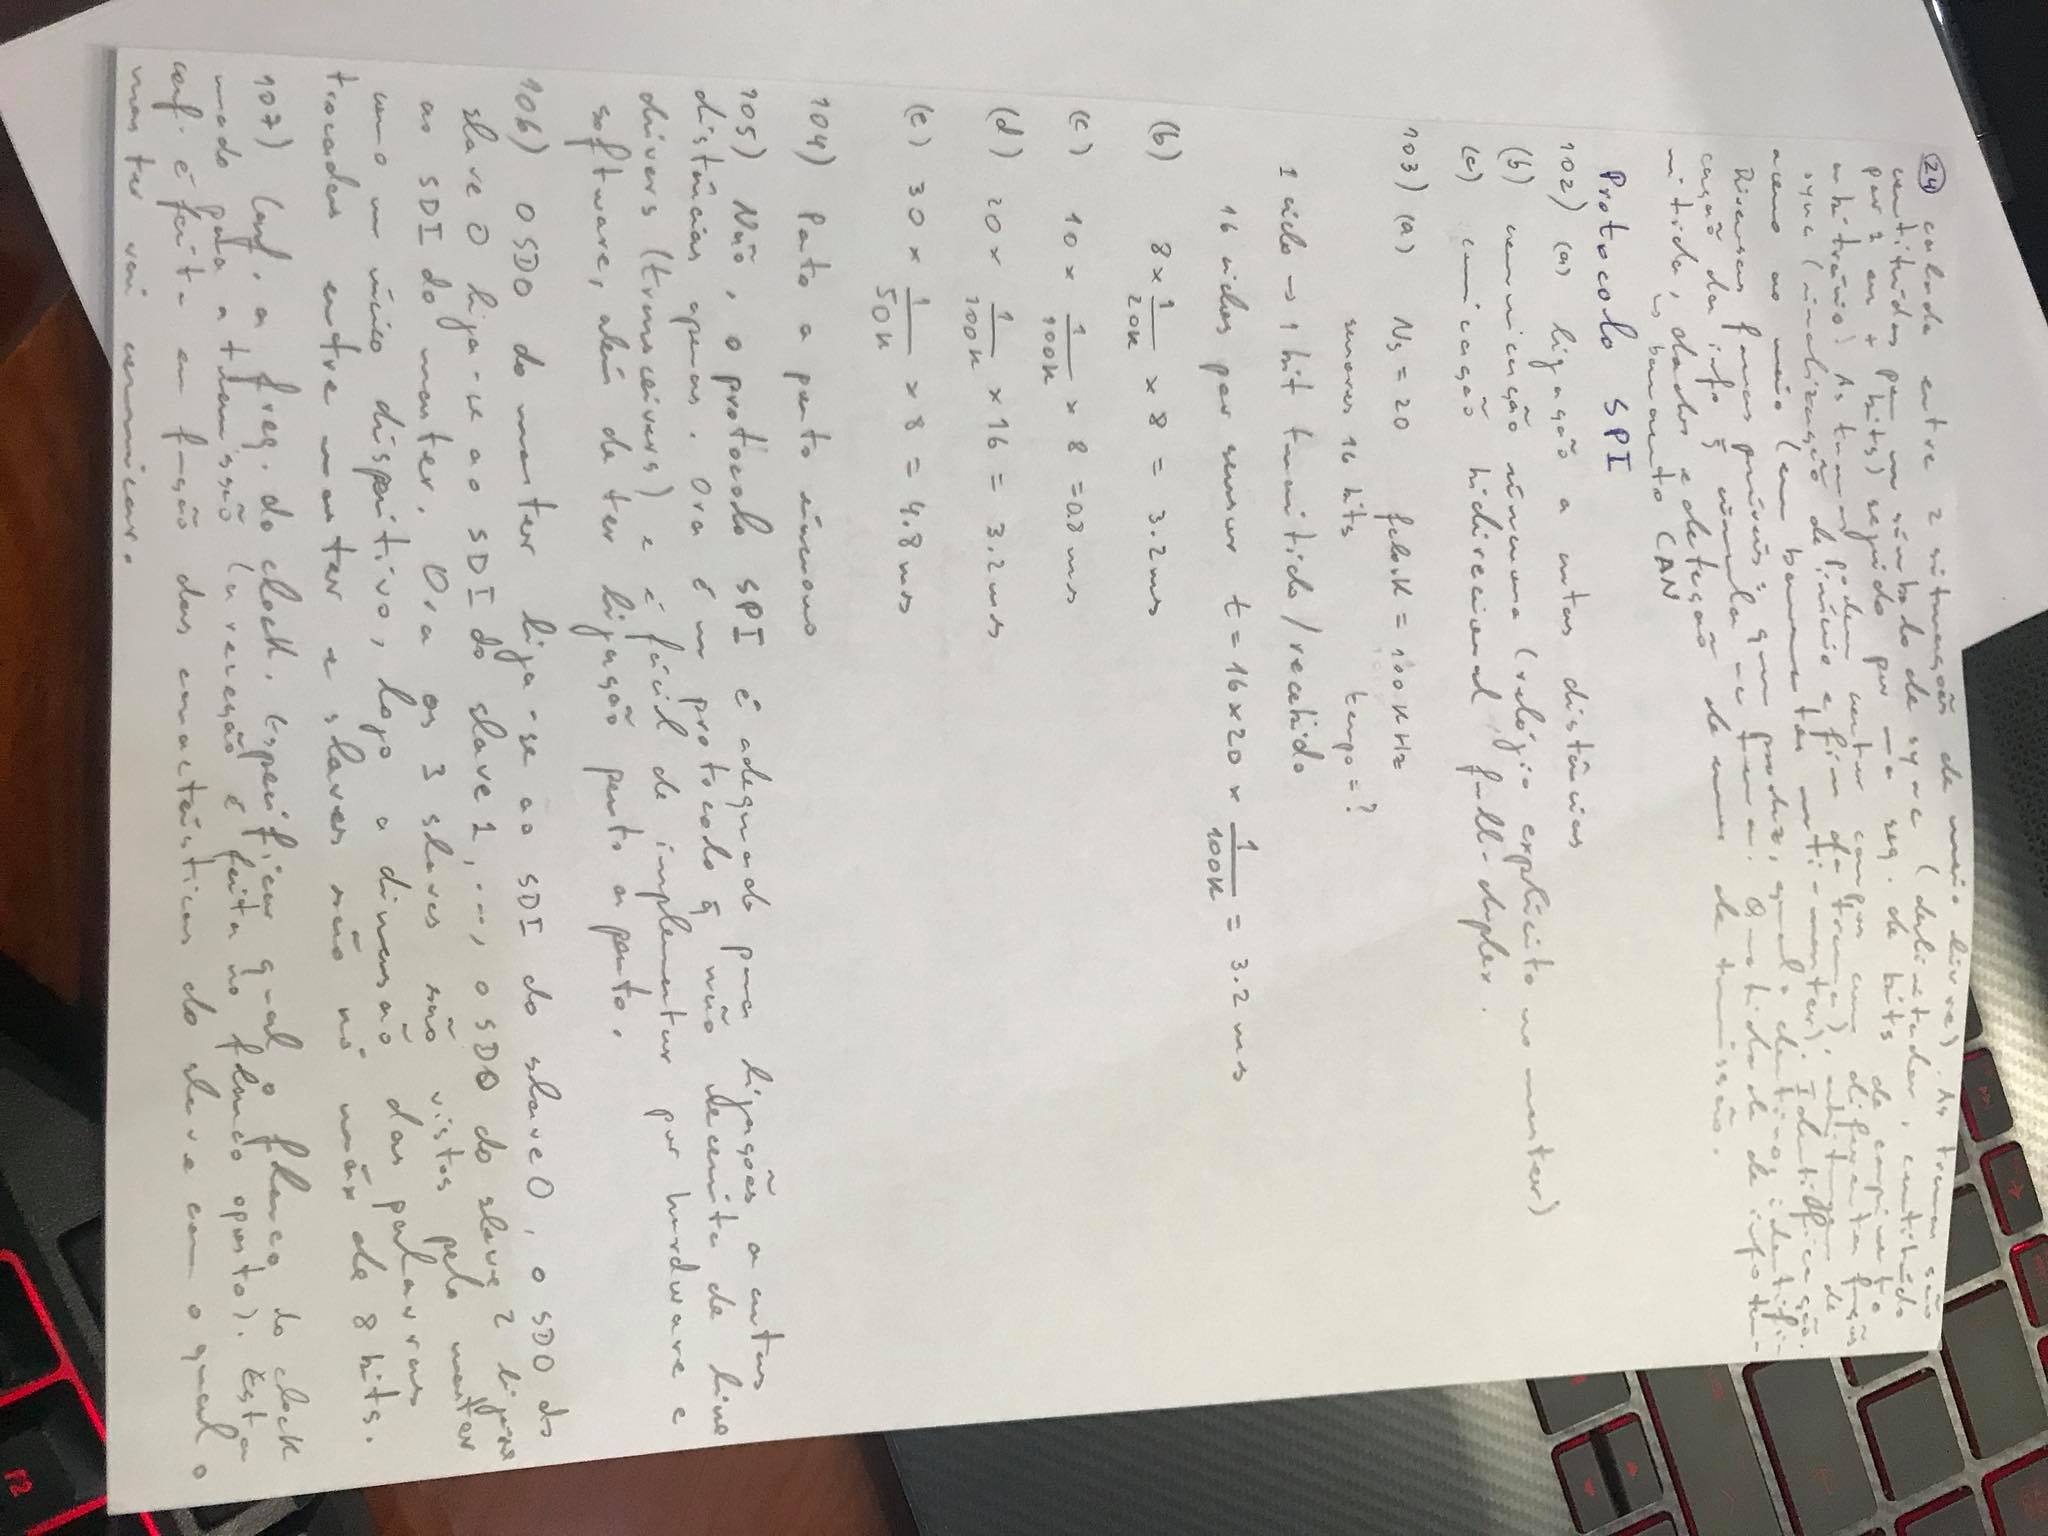 24 calada entre 2 situações de meio livre). As tramas são
constituídas por um símbolo de sync (delimitador, constituído
por 1 ou + bits) seguido por uma seq. de bits de comprimento
arbitrário! As tramas podem conter campos com diferentes funções
sync (sinalização de início e fim da trama), arbitragem de
acesso ao meio (em barramentos multi-master). Identificação.
Diversas formas possíveis: quem produz, qual o destino, identifi-
cação da info q circula na trama. Quantidade de info tran-
mitida, dados e deteção de erros de transmissão.
↳ barramento CAN
Protocolo SPI
102) (a) ligação a curtas distâncias
(b) comunicação síncrona (relógio explícito no master)
(c) comunicação bidirecional full-duplex.
103) (a) Ns = 20 fclock = 100 KHz
sensores 16 bits tempo = ?
1 ciclo → 1 bit transmitido / recebido
16 ciclos por sensor t = 16 × 20 × 1/100K = 3.2 ms
(b) 8 × 1/20K × 8 = 3.2 ms
(c) 10 × 1/100K × 8 = 0.8 ms
(d) 20 × 1/100K × 16 = 3.2 ms
(e) 30 × 1/50K × 8 = 4.8 ms
104) Ponto a ponto síncrono
105) Não, o protocolo SPI é adequado para ligações a curtas
distâncias apenas. Ora é um protocolo q não necessita de line
drivers (transceivers) e é fácil de implementar por hardware e
software, além de ter ligação ponto a ponto.
106) O SDO do master liga-se ao SDI do slave 0, o SDO do
slave 0 liga-se ao SDI do slave 1, ..., o SDO do slave 2 liga-se
ao SDI do master. Ora os 3 slaves são vistos pelo master
como um único dispositivo, logo a dimensão das palavras
trocadas entre master e slaves são no máx de 8 bits.
107) Conf. a freq. do clock. Especificar qual o flanco do clock
usado para a transmissão (a receção é feita no flanco oposto). Esta
conf. é feita em função das características do slave com o qual o
master vai comunicar.
F2